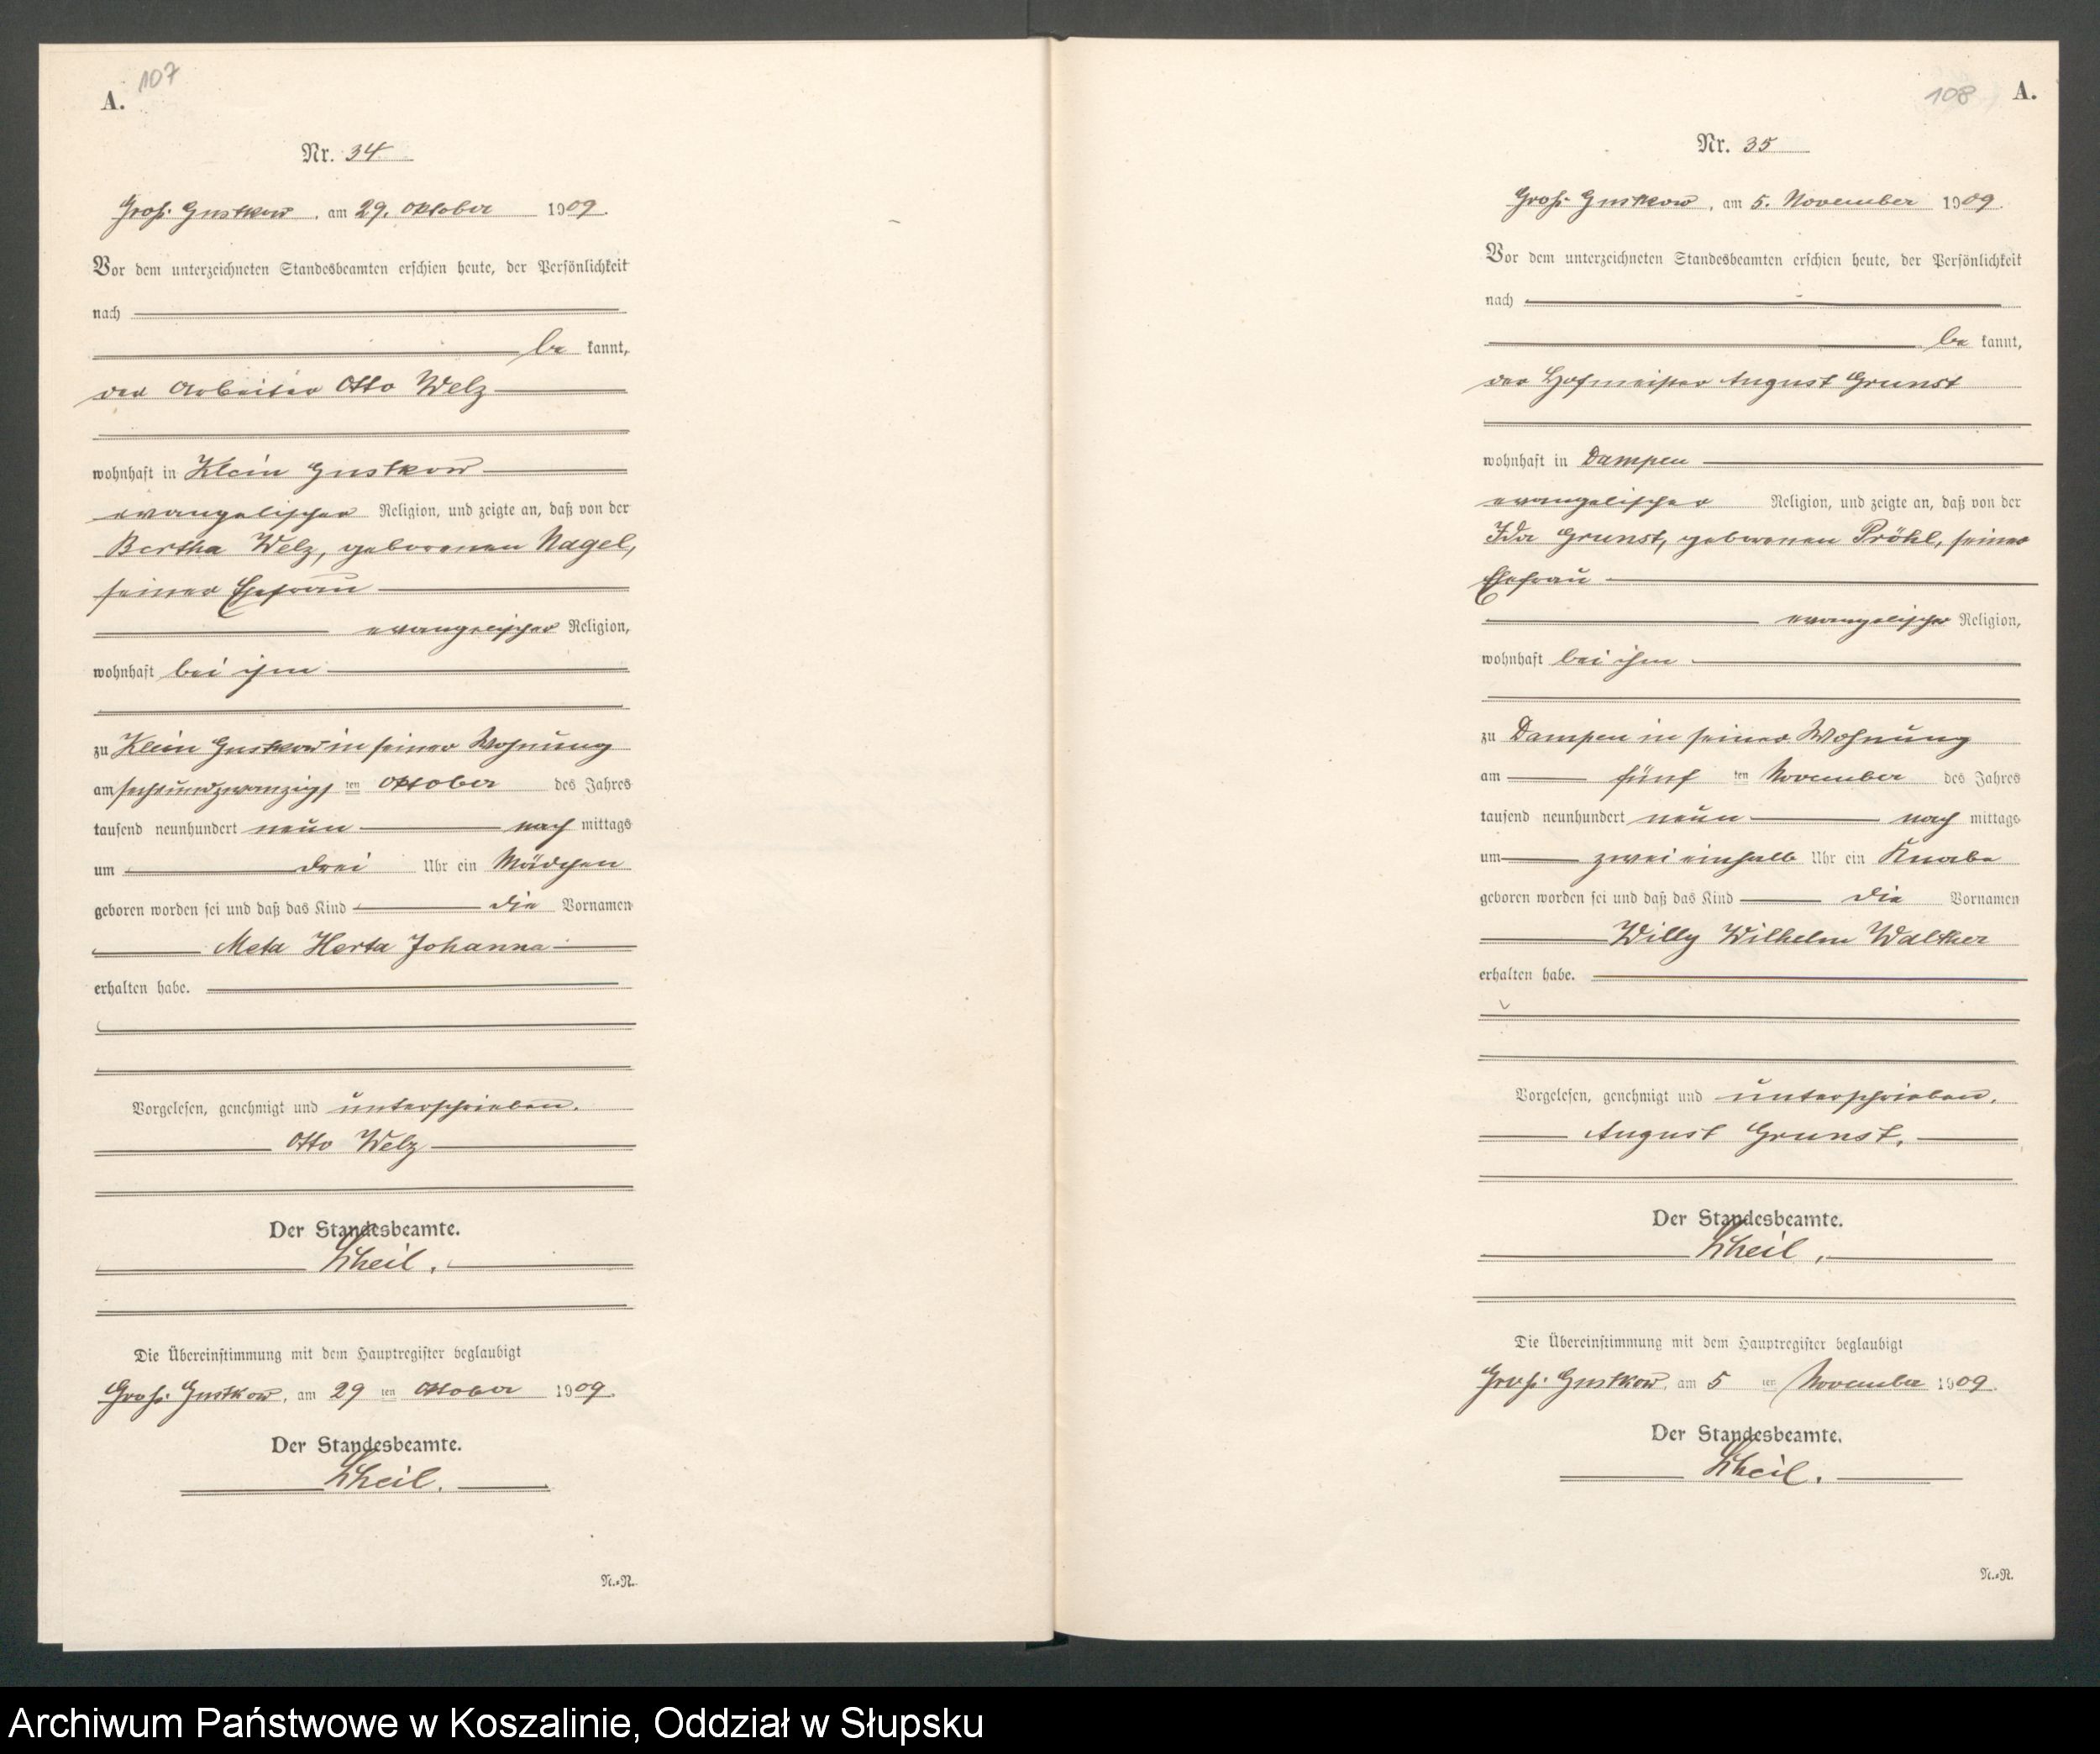 A.
107
Nr. 34
Groß Gustkow, am 29. Oktober 1909.
Vor dem unterzeichneten Standesbeamten erschien heute, der Persönlichkeit
nach
be kannt,
der Arbeiter Otto Welz
wohnhaft in Klein Gustkow
evangelischer Religion, und zeigte an, daß von der
Bertha Welz, geborenen Nagel,
seiner Ehefrau
evangelischer Religion,
wohnhaft bei ihm
zu Klein Gustkow in seiner Wohnung
am sechsundzwanzigs ten Oktober des Jahres
tausend neunhundert neun nach mittags
um drei Uhr ein Mädchen
geboren worden sei und daß das Kind die Vornamen
Meta Herta Johanna
erhalten habe.
Vorgelesen, genehmigt und unterschrieben.
Otto Welz
Der Standesbeamte.
Scheil.
Die Übereinstimmung mit dem Hauptregister beglaubigt
Groß Gustkow, am 29 ten Oktober 1909.
Der Standesbeamte.
Scheil.
N.=R.
108 A.
Nr. 35
Groß Gustkow, am 5. November 1909.
Vor dem unterzeichneten Standesbeamten erschien heute, der Persönlichkeit
nach
be kannt,
der Hofmeister August Grunst
wohnhaft in Dampen
evangelischer Religion, und zeigte an, daß von der
Ida Grunst, geborenen Pröhl, seiner
Ehefrau
evangelischer Religion,
wohnhaft bei ihm
zu Dampen in seiner Wohnung
am fünf ten November des Jahres
tausend neunhundert neun nach mittags
um zwei einhalb Uhr ein Knabe
geboren worden sei und daß das Kind die Vornamen
Willy Wilhelm Walther
erhalten habe.
Vorgelesen, genehmigt und unterschrieben.
August Grunst.
Der Standesbeamte.
Scheil.
Die Übereinstimmung mit dem Hauptregister beglaubigt
Groß Gustkow, am 5 ten November 1909.
Der Standesbeamte.
Scheil.
N.=R.
Archiwum Państwowe w Koszalinie, Oddział w Słupsku